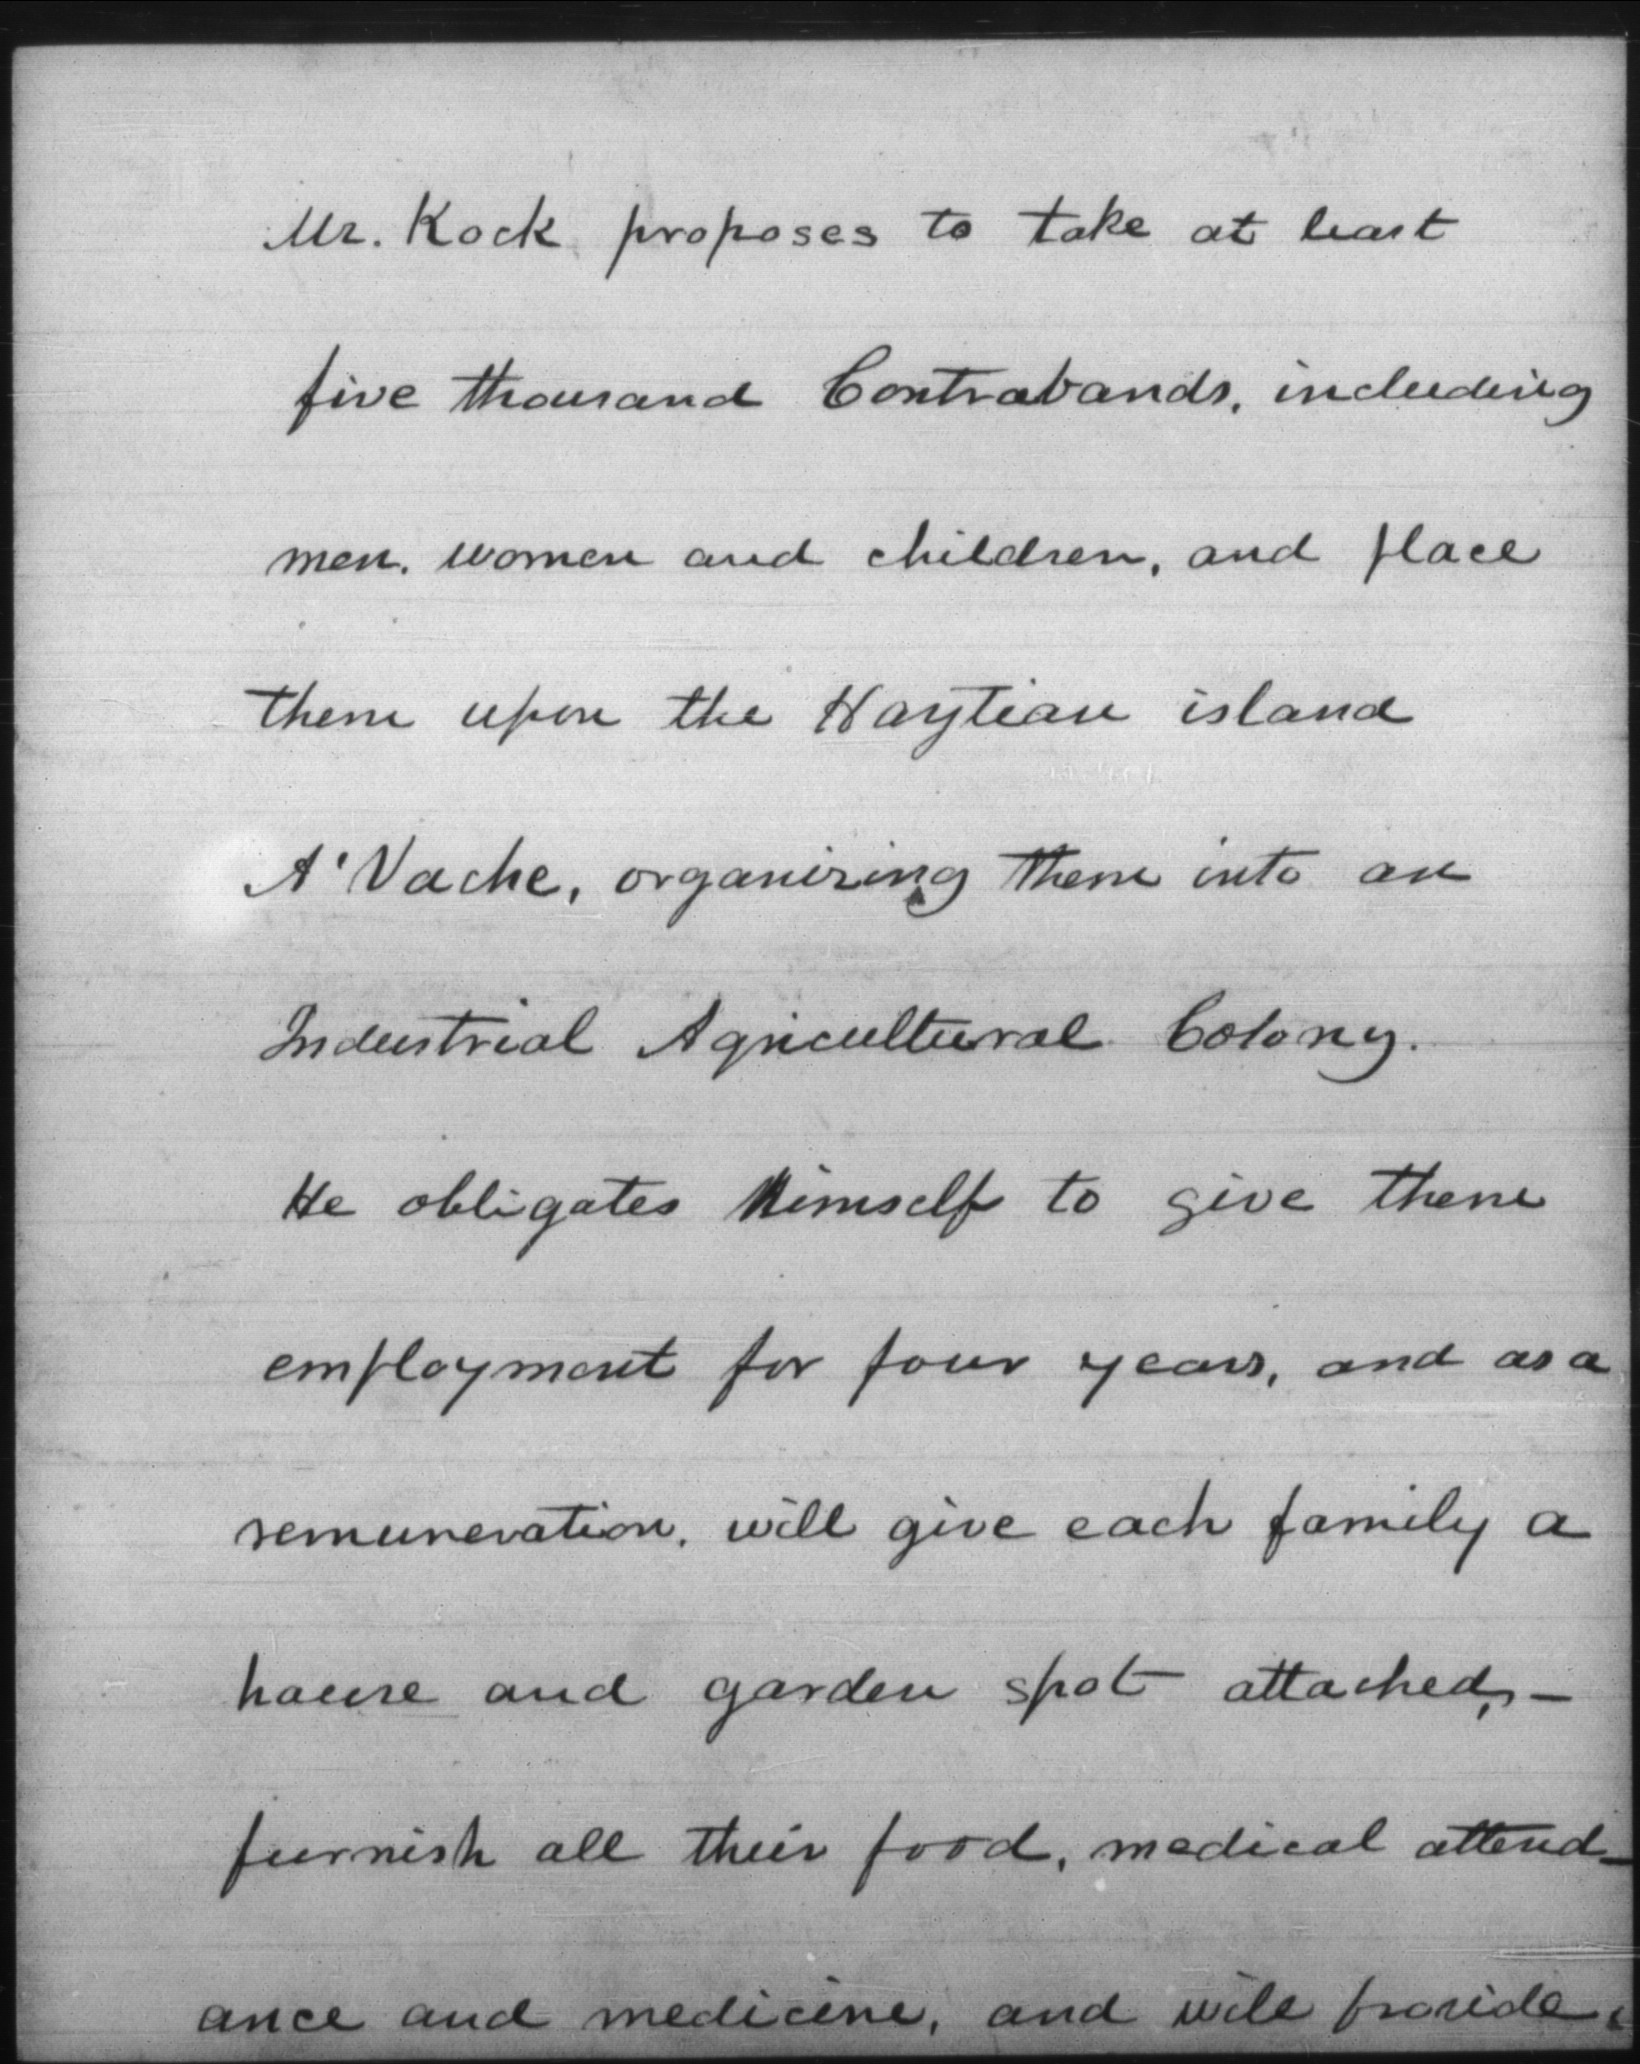 Mr. Kock proposes to take at least
five thousand Contrabands, including
men, women and children, and place
them upon the Haytian island
A'Vache, organizing them into an
Industrial Agricultural Colony.
He obligates himself to give them
employment for four years, and as a
remuneration, will give each family a
house and garden spot attached, —
furnish all their food, medical attend-
ance and medicine, and will provide,